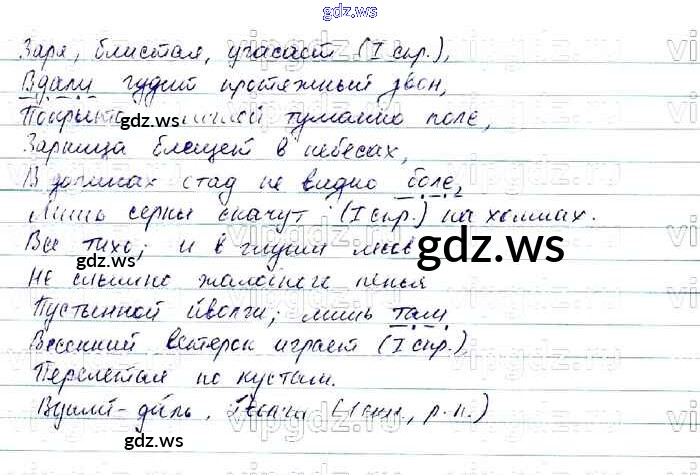 gdz.ws
Заря, блистая, угасает (I спр.),
Вдали гудит протяжный звон,
gdz.ws
туманно поле,
Зарница блещет в небесах,
В долинах стад не видно боле,
Лишь серны скачут (I спр.) на холмах.
Все тихо; и в глуши
gdz.ws
gdz.ws
Не слышно жалобного пенья
Пустынной иволги; лишь там
Весенний ветерок играет (I спр.)
Перелетая по кустам.
Вдали - даль.
gdz.ws
gdz.ws
vipgdz.ru